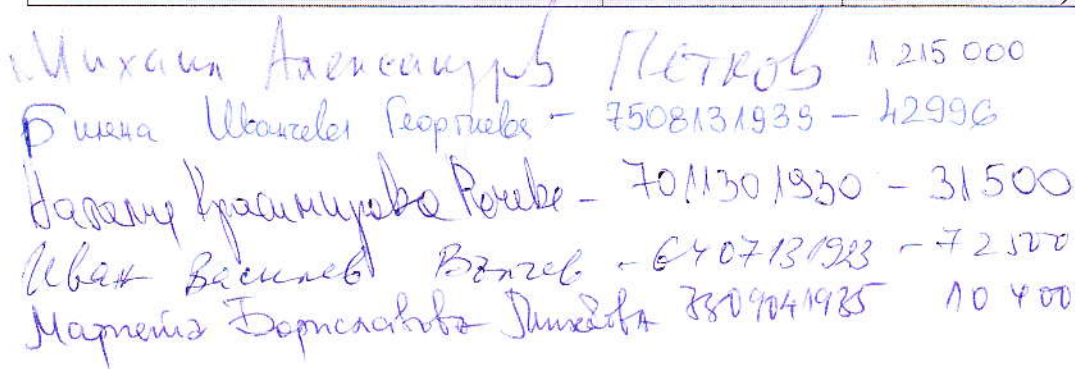 Михаил Александров Петков 1 215 000
Биляна Иванчева Георгиева - 7508131939 - 42996
Наталия Красимирова - 7011301930 - 31500
Иван Василев Вълчев - 6407131923 - 72500
Мариета Бориславова 10 400